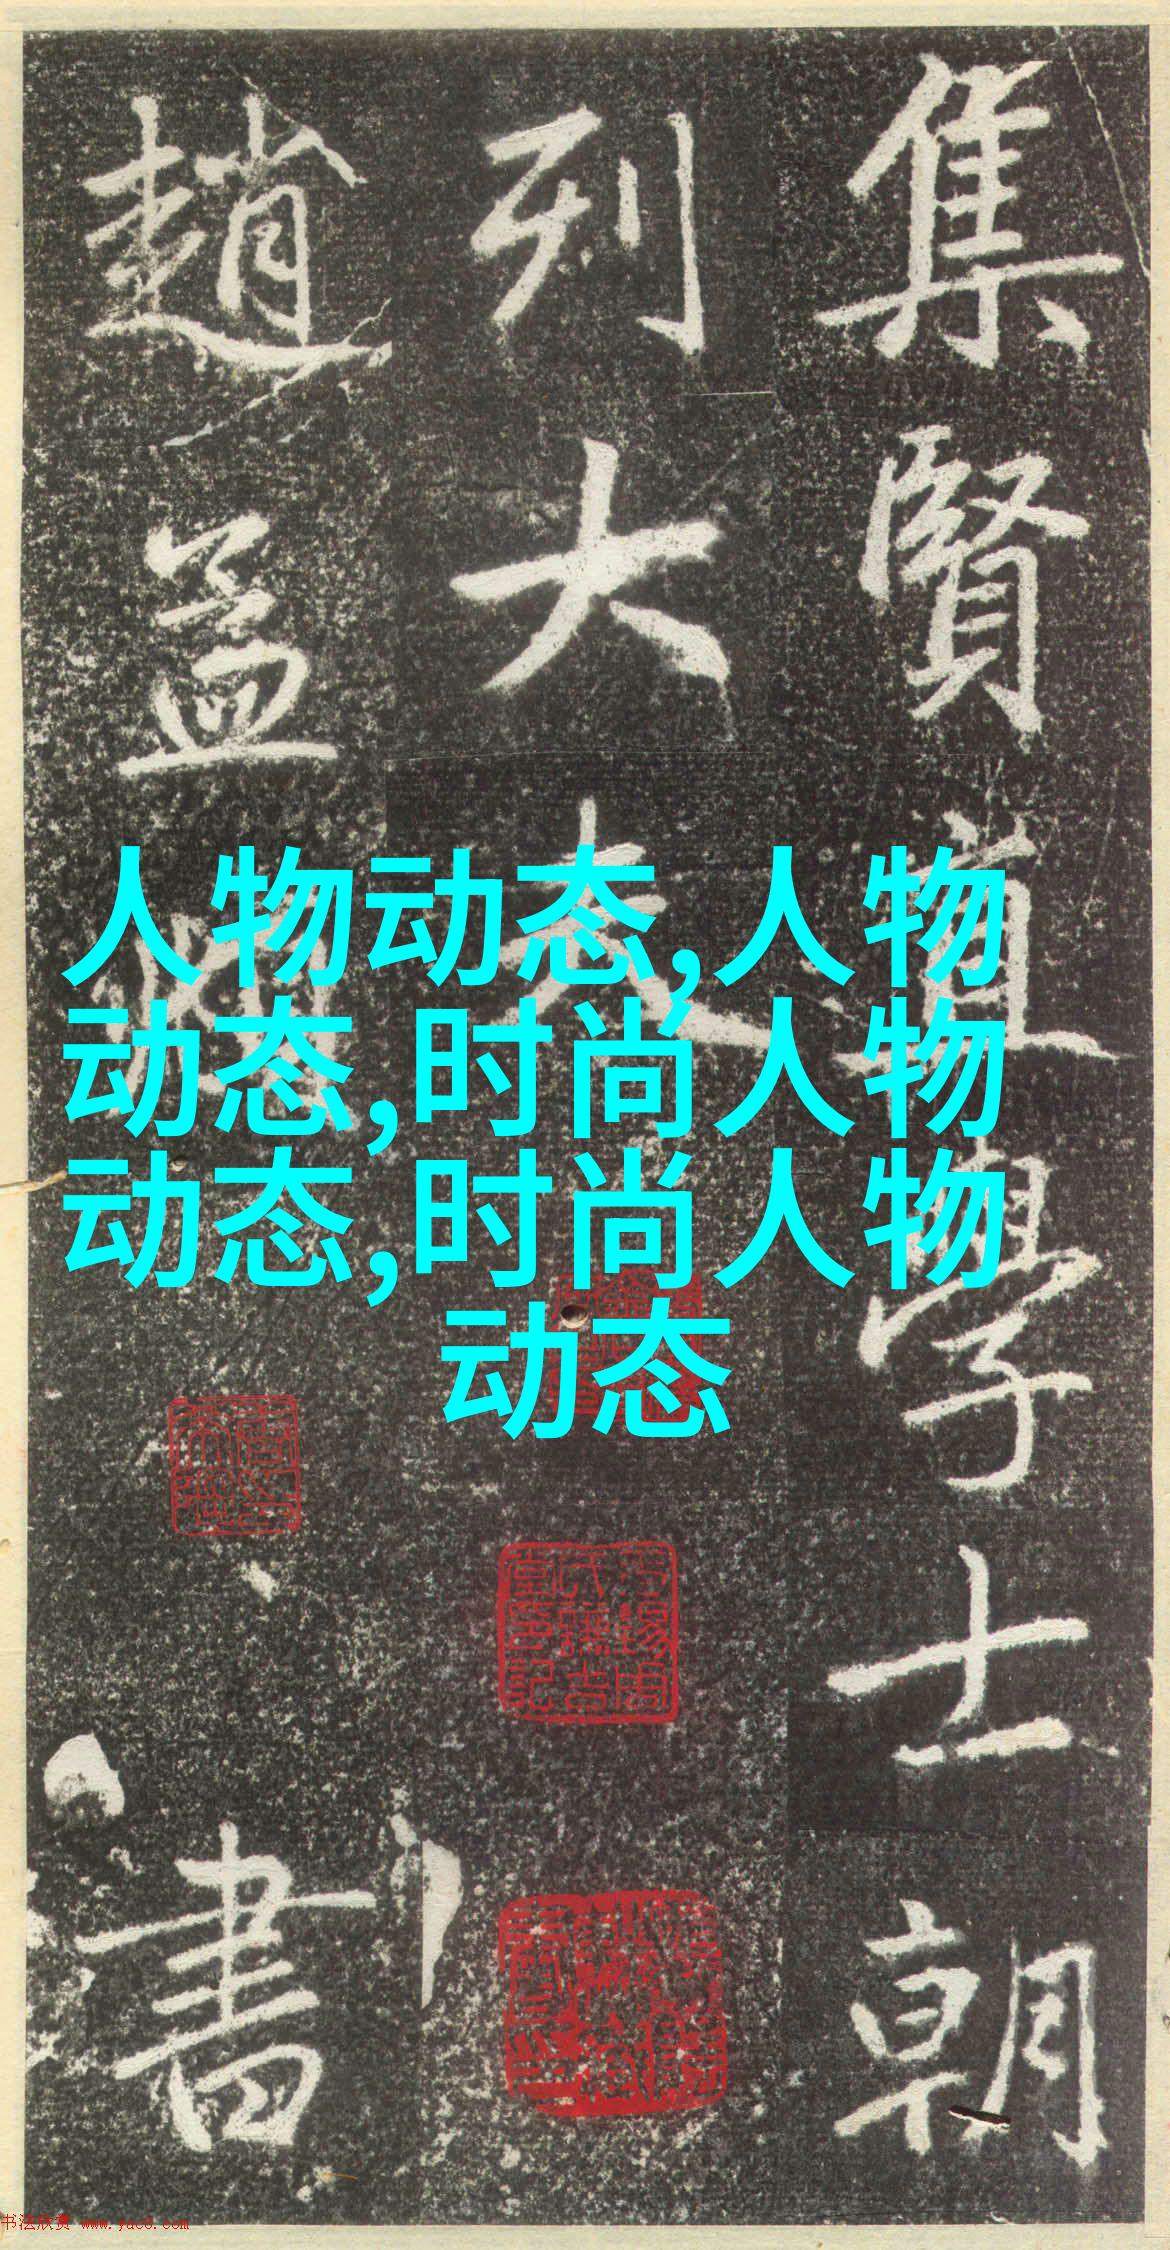 集賢直學士朝
列大夫
趙孟頫
書
人物动态,人物
动态,时尚人物
动态,时尚人物
动态
书法欣赏 www.yac8.com